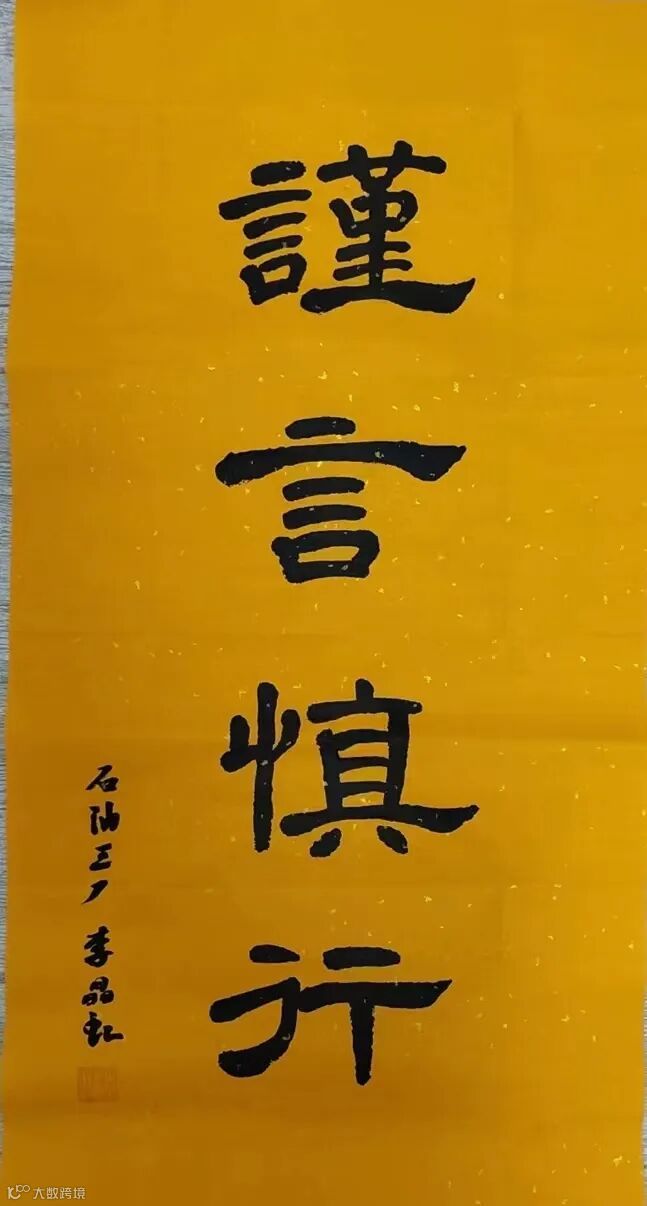 謹言慎行
石油三厂 李晶虹
大数跨境